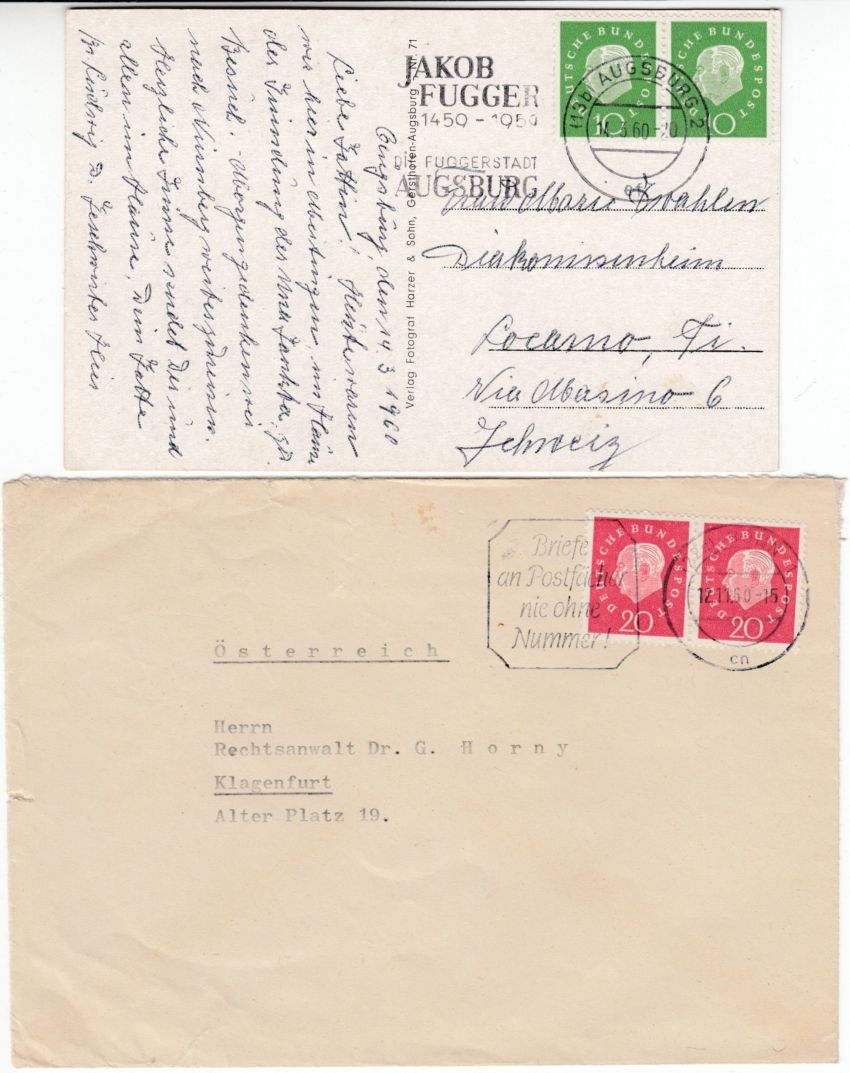 JAKOB
FUGGER
1459 - 1959
DIE FUGGERSTADT
AUGSBURG
DEUTSCHE BUNDESPOST
10
DEUTSCHE BUNDESPOST
10
(13b) AUGSBURG 2
14.3.60-20
Verlag Fotograf Harzer & Sohn, Gersthofen-Augsburg Nr. 71
Augsburg, den 14.3.1960
Liebe Gattin! Heute waren
wir hier in im Hause
der
Besuch. Morgen gedenken wir
nach Nürnberg weiterzureisen.
Herzliche Grüsse sendet Dir und
allen im Hause, Dein Gatte
Marie Zwahlen
Diakonissenheim
Locarno, Ti.
Via Masino 6
Schweiz
Briefe
an Postfächer
nie ohne
Nummer!
DEUTSCHE BUNDESPOST
20
DEUTSCHE BUNDESPOST
20
12.11.60-15
cn
Österreich
Herrn
Rechtsanwalt Dr. G. Horny
Klagenfurt
Alter Platz 19.